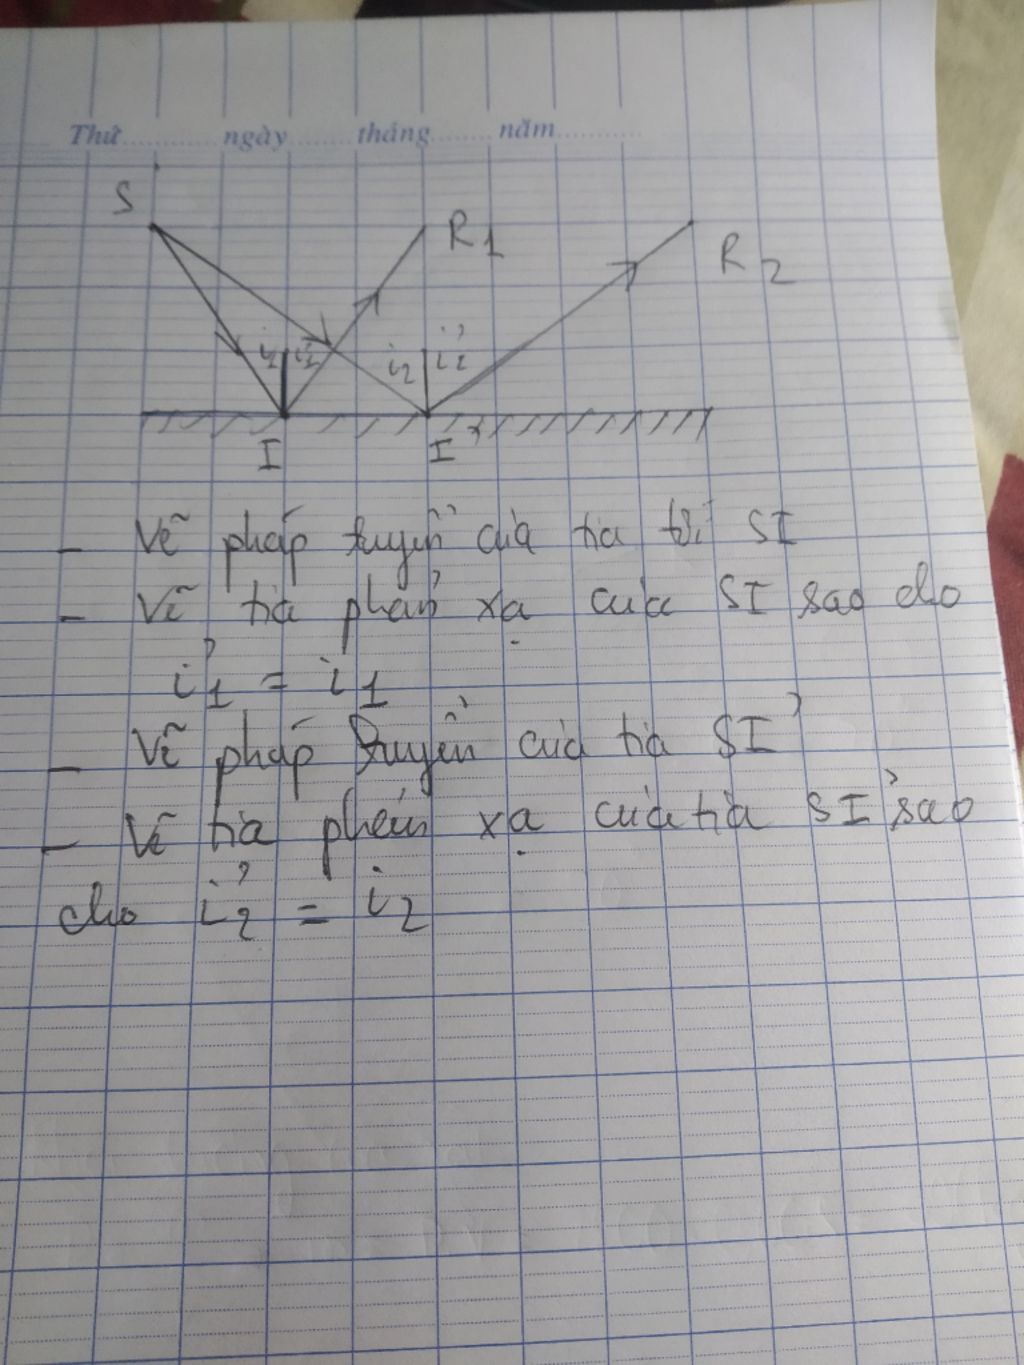 Thứ............ngày.......tháng........năm............
S
R1
R2
i1 i'1 i2 i'2
I I'
- Vẽ pháp tuyến của tia tới SI
- Vẽ tia phản xạ của SI sao cho
i'1 = i1
- Vẽ pháp tuyến của tia SI'
- Vẽ tia phản xạ của tia SI' sao
cho i'2 = i2